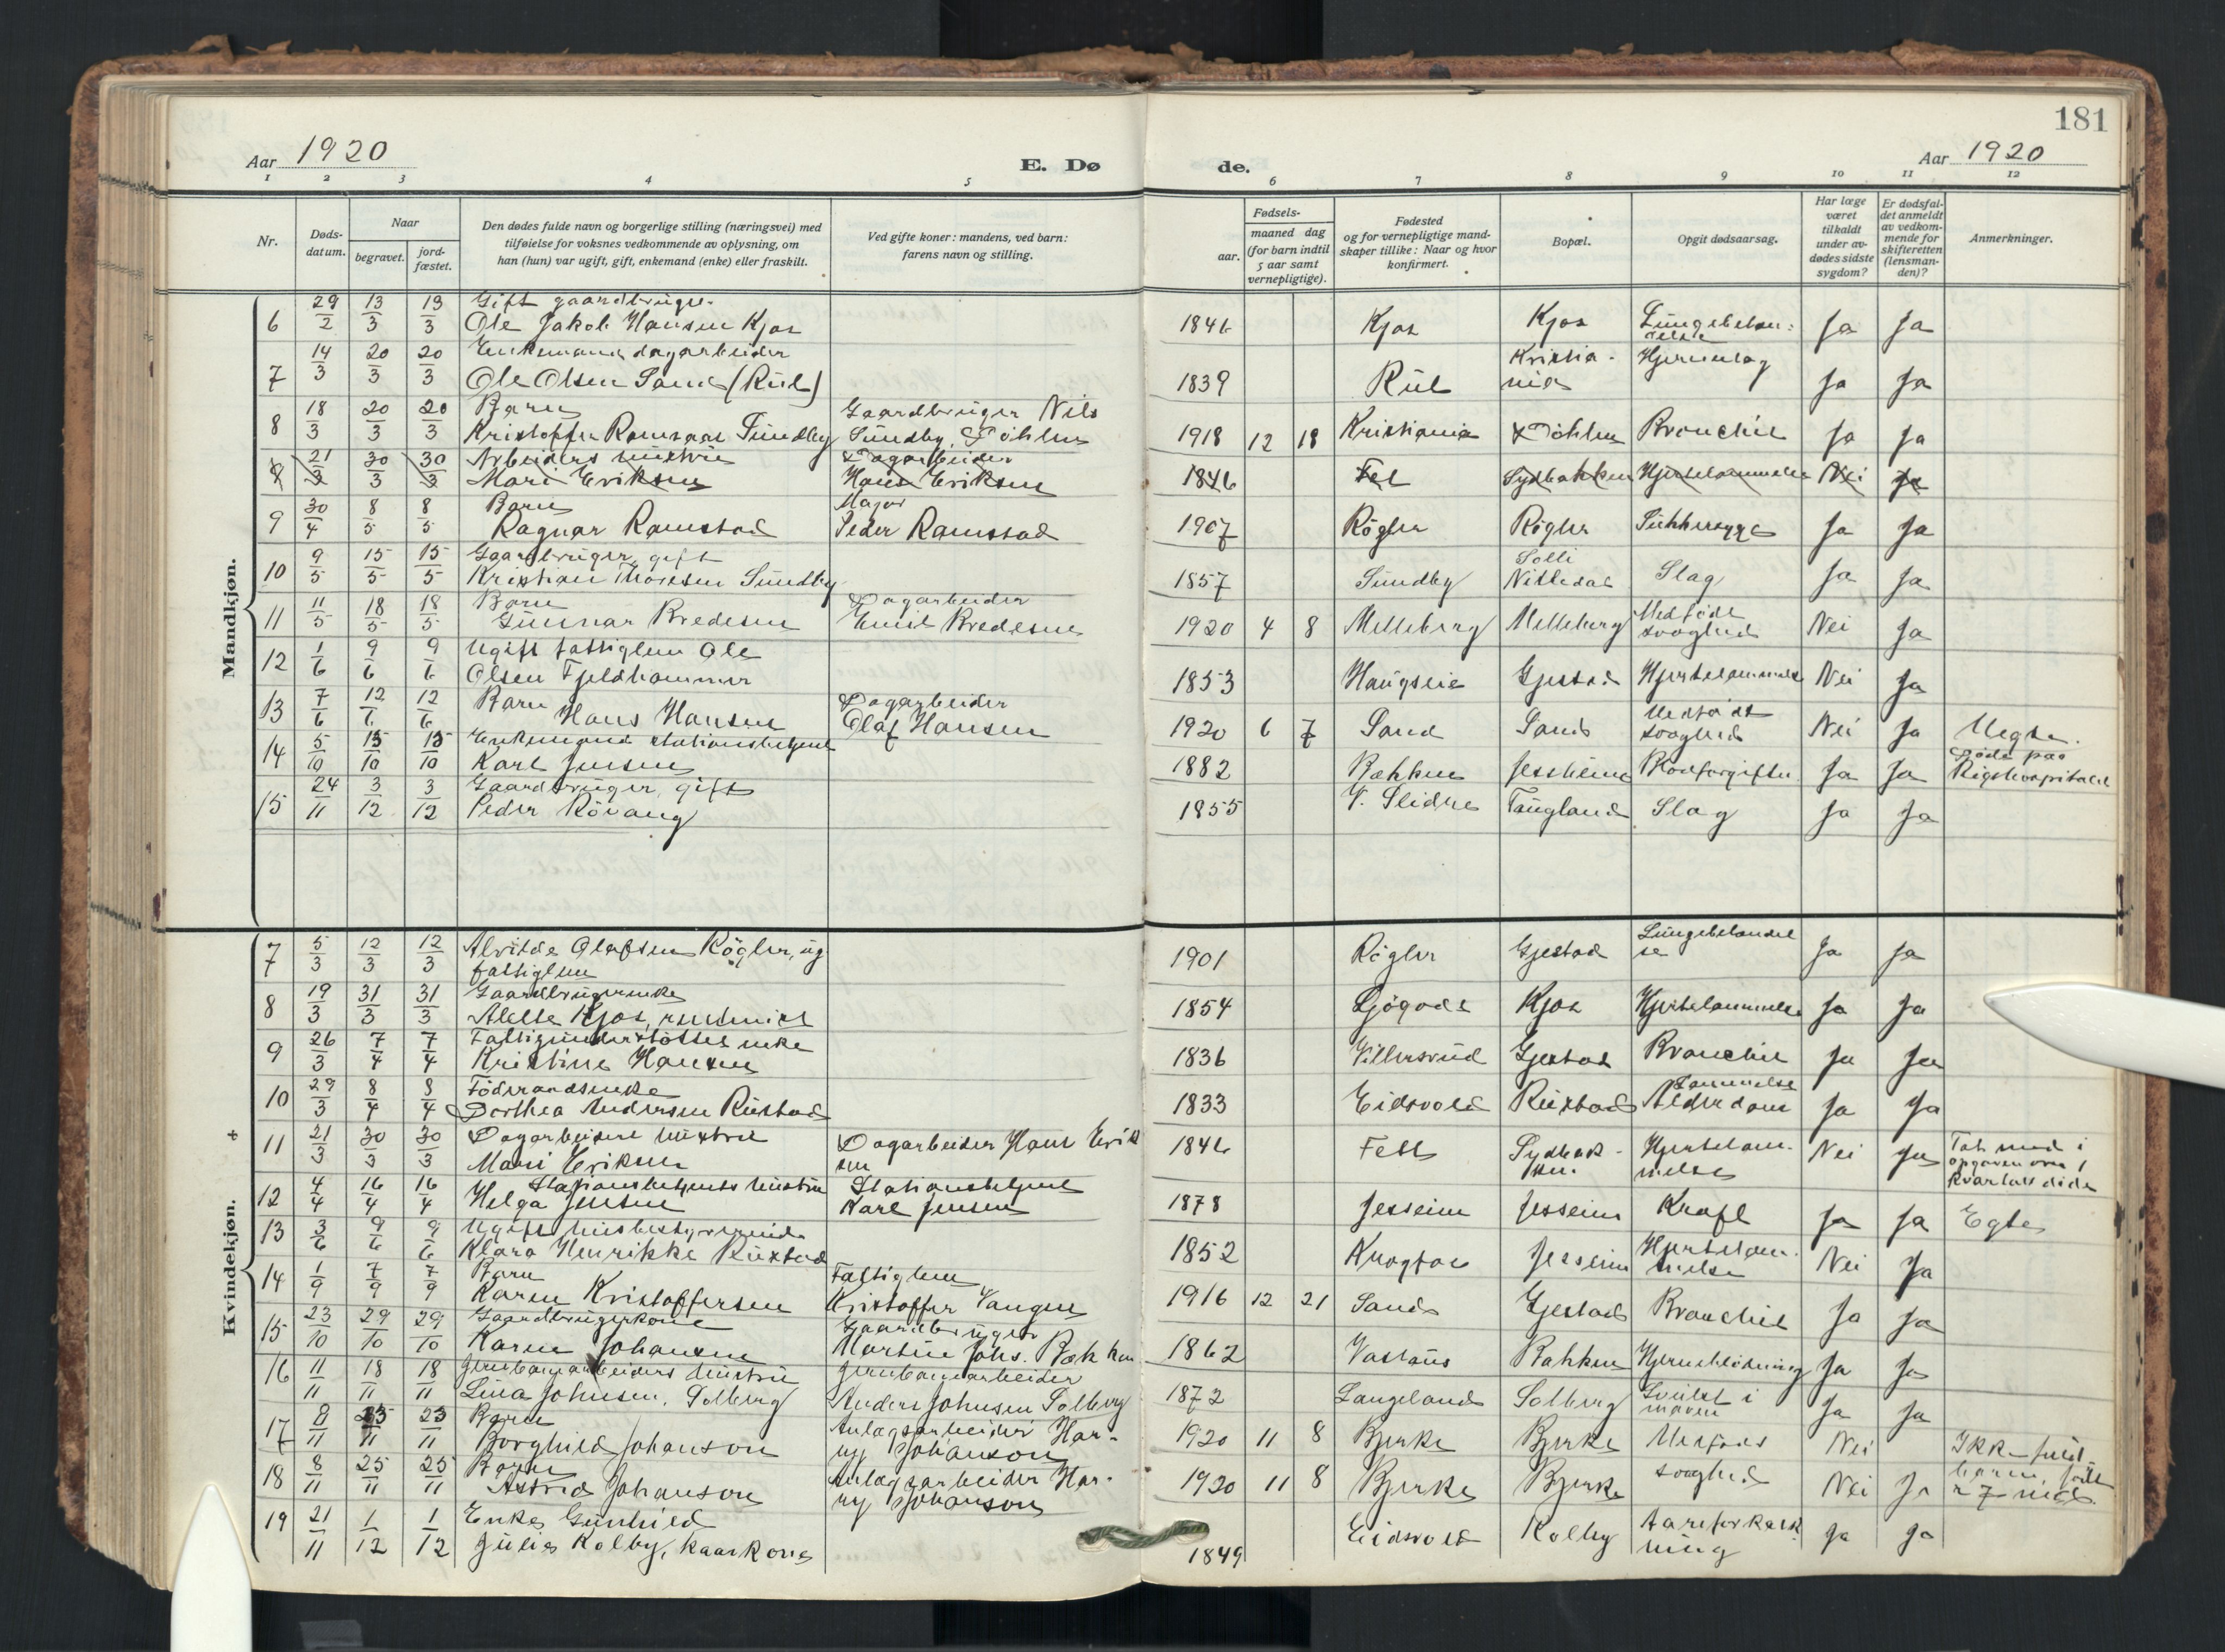 181
Aar 1920 E. Dø de. Aar 1920
1 2 3 4 5 6 7 8 9 10 11 12
Nr.
Døds-
datum.
Naar
begravet.
jord-
fæstet.
Den dødes fulde navn og borgerlige stilling (næringsvei) med
tilføielse for voksnes vedkommende av oplysning, om
han (hun) var ugift, gift, enkemand (enke) eller fraskilt.
Ved gifte koner: mandens, ved barn:
farens navn og stilling.
Fødsels-
aar.
maaned dag
(for barn indtil
5 aar samt
vernepligtige).
Fødested
og for vernepligtige mand-
skaper tillike: Naar og hvor
konfirmert.
Bopæl.
Opgit dødsaarsag.
Har læge
været
tilkaldt
under av-
dødes sidste
sygdom?
Er dødsfal-
det anmeldt
av vedkom-
mende for
skifteretten
(lensman-
den)?
Anmerkninger.
Mandkjøn.
6 29/2 13/3 13/3 Gift gaardbruger
Ole Jakob Hansen Kjos 1846 Kjos Kjos Lungebetæn-
delse Ja Ja
7 14/3 20/3 20/3 Enkemand dagarbeider
Ole Olsen Sand (Kul) 1839 Kul Kristia-
nia Hjerneslag Ja Ja
8 18/3 20/3 20/3 Barn Gaardbruger Nils
Kristoffer Romsaas Sundby Sundby, Døhlen 1918 12 18 Kristiania Døhlen Bronchit Ja Ja
9 21/3 30/3 30/3 Arbeiders hustru Dagarbeider
Mari Eriksen Hans Eriksen 1846 Fet Sydbakken Hjertelammelse Nei Ja
9 30/4 8/5 8/5 Barn Major
Ragnar Ramstad Peder Ramstad 1907 Røgler Røgler Sukkersyge Ja Ja
10 9/5 15/5 15/5 Gaardbruger, gift
Kristian Thoresen Sundby 1857 Sundby Solli
Nittedal Slag Ja Ja
11 11/5 18/5 18/5 Barn Dagarbeider
Gunnar Bredesen Emil Bredesen 1920 4 8 Melleberg Melleberg Medfødt
svaghed Nei Ja
12 1/6 9/6 9/6 Ugift fattiglem Ole
Olsen Fjeldhammer 1853 Haugseie Gjestad Hjertelammelse Nei Ja
13 7/6 12/6 12/6 Barn Dagarbeider
Hans Hansen Olaf Hansen 1920 6 7 Sand Sand Medfødt
svaghed Nei Ja Uegte.
14 5/10 15/10 15/10 Enkemand stationsbetjent
Karl Jensen 1882 Bækken Jessheim Blodforgiftn. Ja Ja Døde paa
Rigshospitalet
15 24/11 3/12 3/12 Gaardbruger, gift
Peder Røvang 1855 V. Slidre Taugland Slag Ja Ja
Kvindekjøn.
7 5/3 12/3 12/3 Alvilde Olafsen Røgler, ug
fattiglem 1901 Røgler Gjestad Lungebetændel
se Ja Ja
8 19/3 31/3 31/3 Gaardbrugerenke
Alette Kjos, 1854 Ljøgods Kjos Hjertelammelse Ja Ja
9 26/3 7/4 7/4 Fattigunderstøttet enke
Kristine Hansen 1836 Gjestad Bronchit Ja Ja
10 29/3 8/4 8/4 Føderaadsenke
Dorthea Andersen Rustad 1833 Eidsvold Rustad Alderdoms
lammelse Ja Ja
11 21/3 30/3 30/3 Dagarbeiders hustru Dagarbeider Hans Erik
Mari Eriksen sen 1846 Fet Sydbak-
ken Hjertelam-
melse Nei Ja Tat med i
opgaven over 1
kvartals døde
12 4/4 16/4 16/4 Stationsbetjents hustru Stationsbetjent
Helga Jensen Karl Jensen 1878 Jesseim Jesseim Kræft Ja Ja Egte
13 3/6 9/6 9/6 Ugift husbestyrerinde
Klara Henrikke Rustad 1852 Krogfos Jesseim Hjertelam-
melse Nei Ja
14 1/9 7/9 7/9 Barn Fattiglem
Karen Kristoffersen Kristoffer Vangen 1916 12 21 Sand Gjestad Bronchit Ja Ja
15 23/10 29/10 29/10 Gaardbrugerkone Gaardbruger
Karen Johansen Martin Johs. Bækken 1862 Bakken Hjerneblødning Ja Ja
16 11/11 18/11 18/11 Jernbanearbeiders hustru Jernbanearbeider
Lina Johnsen, Solberg Anders Johnsen Solberg 1872 Langeland Solberg Svulst i
maven Ja Ja
17 8/11 23/11 23/11 Barn Anlægsarbeider Har-
Borghild Johanson ry Johanson 1920 11 8 Bjerke Bjerke Medfødt Nei Ikke fuld-
18 8/11 25/11 25/11 Barn Anlægsarbeider Har-
Astrid Johanson ry Johanson 1920 11 8 Bjerke Bjerke svaghed Nei Ja
19 21/11 1/12 1/12 Enke Gunhild
Julie Kolby, kaarkone 1849 Eidsvold Kolby Aareforkalk
ning Ja Ja